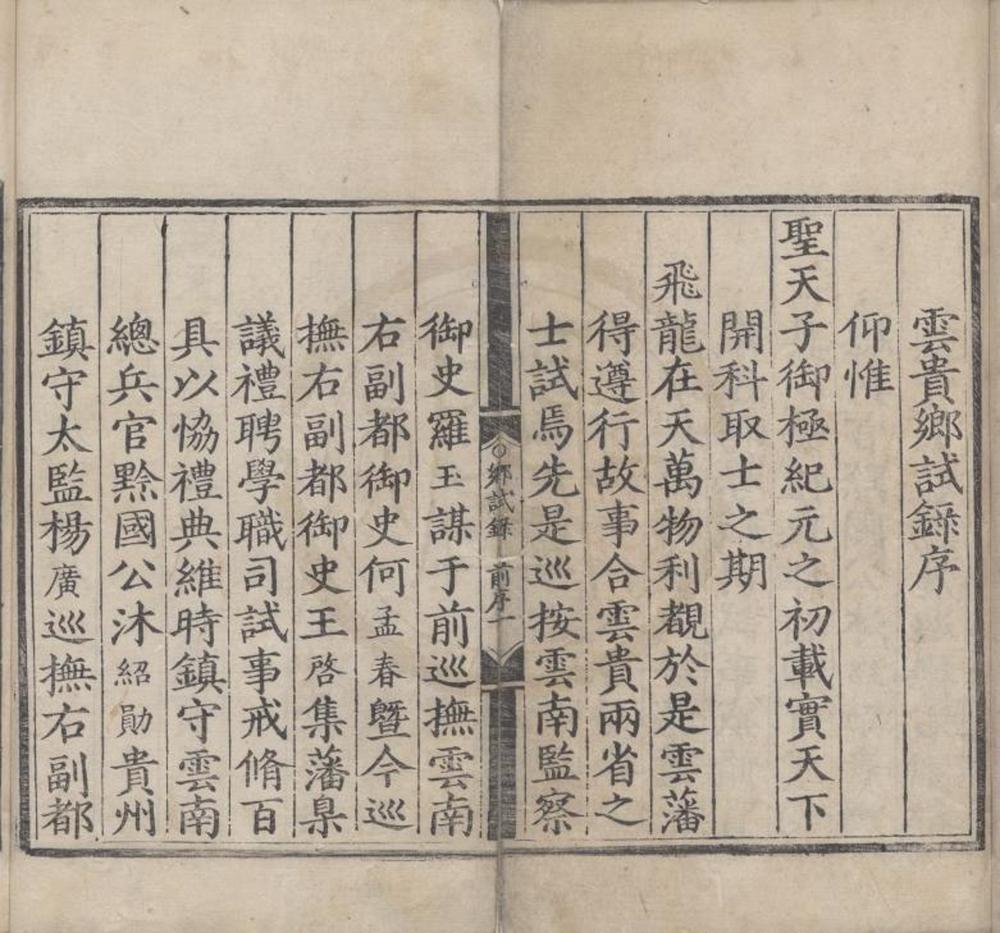 雲貴鄉試錄序
仰惟
聖天子御極紀元之初載實天下
開科取士之期
飛龍在天萬物利覩於是雲藩
得遵行故事合雲貴兩省之
士試焉先是巡按雲南監察
鄉試錄 前序一
御史羅玉謀于前巡撫雲南
右副都御史何孟春曁今巡
撫右副都御史王啓集藩臬
議禮聘學職司試事戒脩百
具以恊禮典維時鎮守雲南
總兵官黔國公沐紹勛貴州
鎮守太監楊廣巡撫右副都